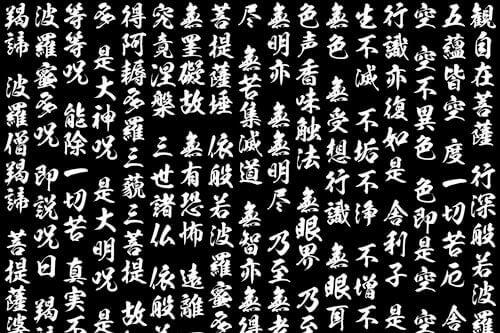 観自在菩薩 行深般若波羅
五蘊皆空 度一切苦厄 舎
空 空不異色 色即是空 空
行識亦復如是 舎利子 是
生不滅 不垢不浄 不増不
無色 無受想行識 無眼耳
色声香味触法 無眼界 乃至
無明亦 無無明尽 乃至無老
尽 無苦集滅道 無智亦無得
菩提薩埵 依般若波羅蜜多
無罣礙故 無有恐怖 遠離
究竟涅槃 三世諸仏 依般若
得阿耨多羅三藐三菩提 故
多 是大神呪 是大明呪
等等呪 能除一切苦 真実不
波羅蜜多呪 即説呪曰 羯
羯諦 波羅僧羯諦 菩提薩婆